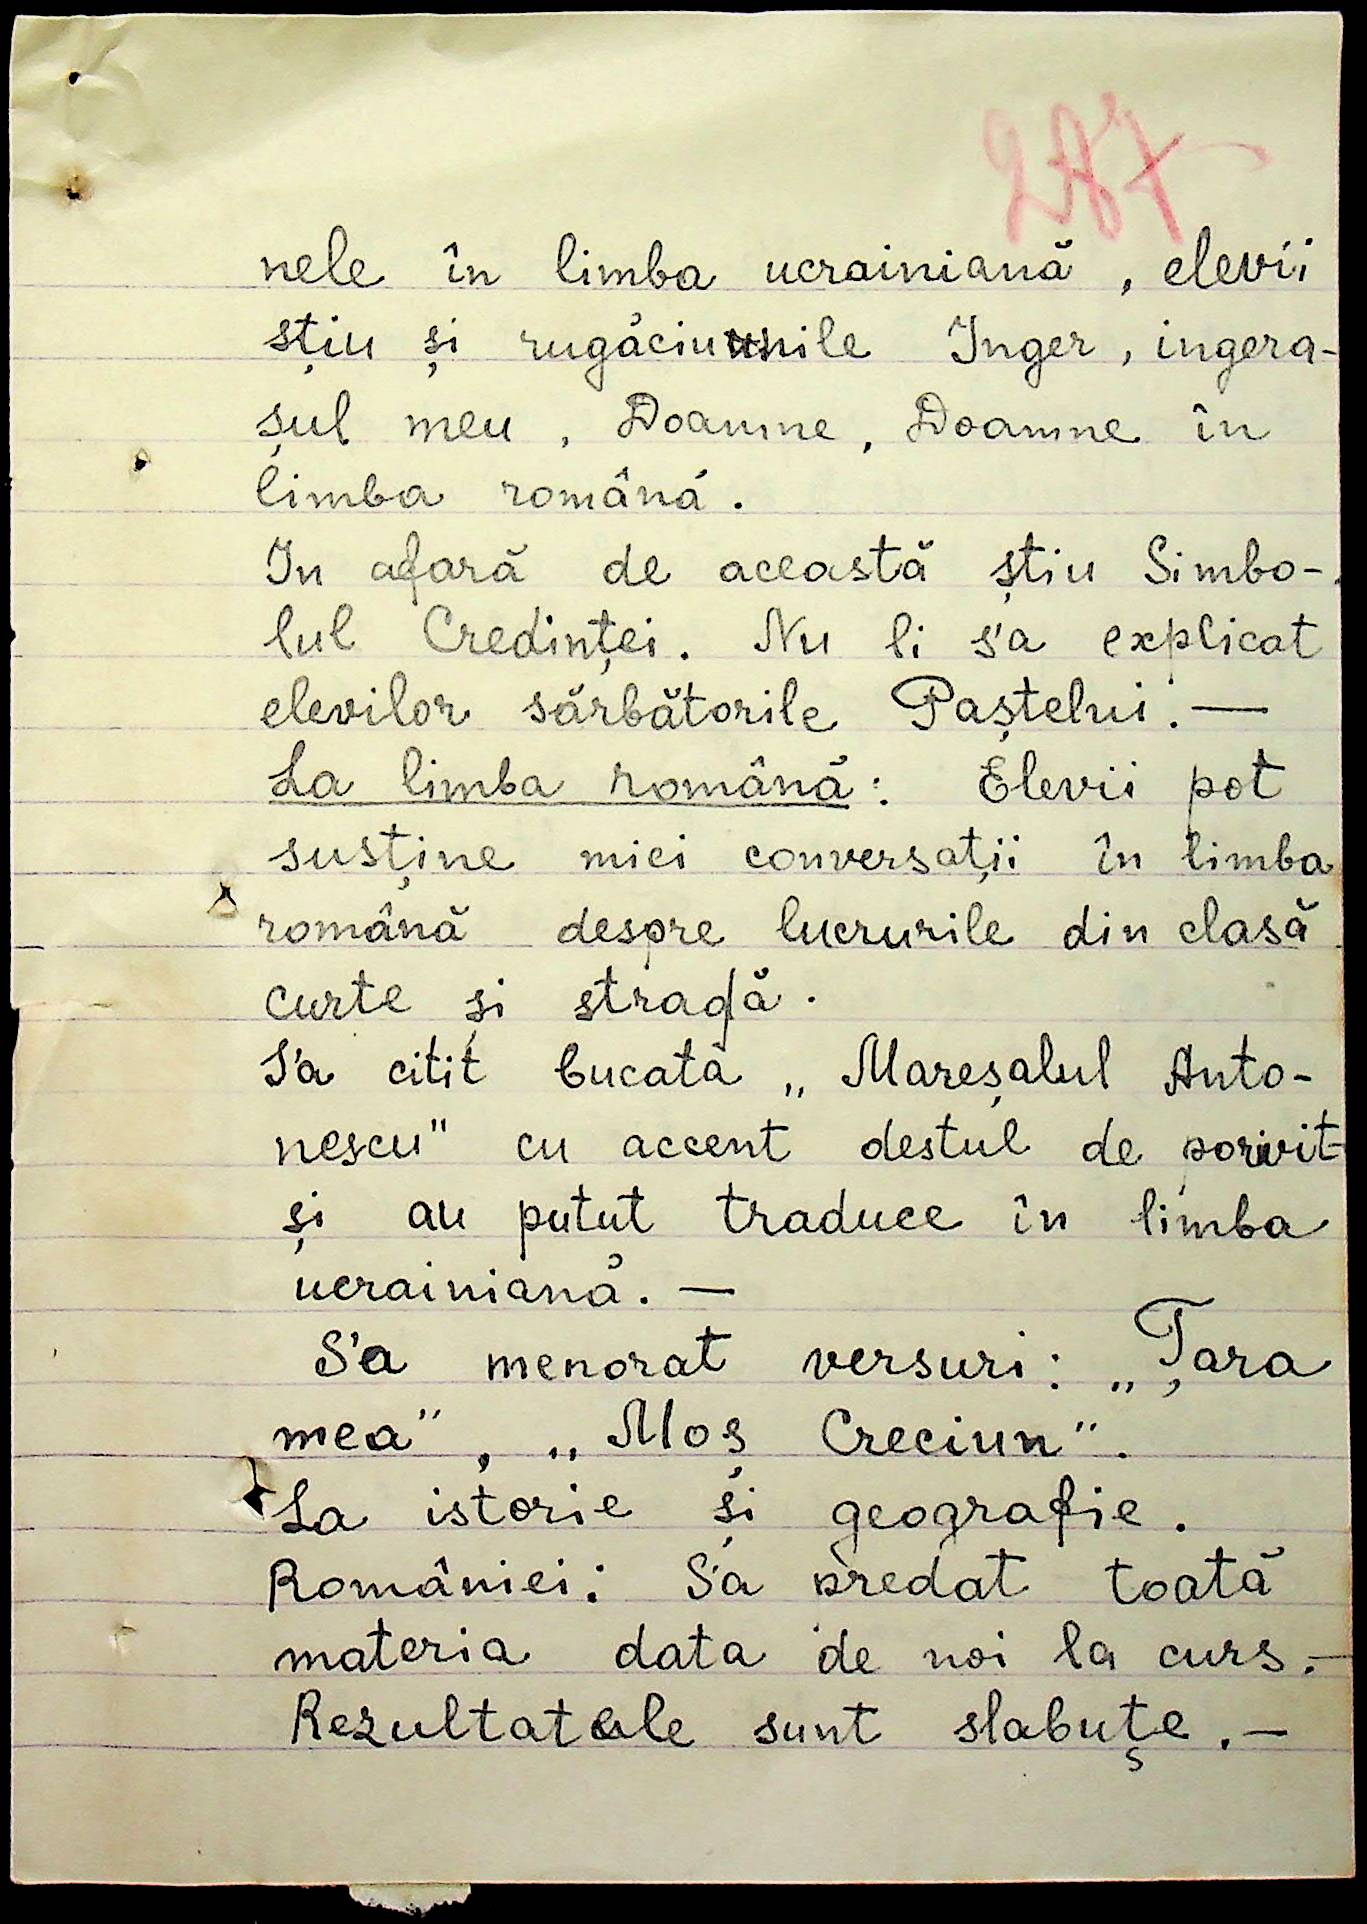 287
nele în limba ucrainiană, elevii
știu și rugăciunile Inger, ingera-
șul meu, Doamne, Doamne în
limba română.
In afară de această știu Simbo-
lul Credinței. Nu li s'a explicat
elevilor sărbătorile Paștelui.—
La limba română: Elevii pot
susține mici conversații în limba
română despre lucrurile din clasă
curte și stradă.
S'a citit bucata „Mareșalul Anto-
nescu" cu accent destul de porivit
și au putut traduce în limba
ucrainiană.—
S'a menorat versuri: „Țara
mea", „Moș Creciun".
La istorie și geografie.
României: S'a predat toată
materia data de noi la curs.—
Rezultatele sunt slabuțe.—